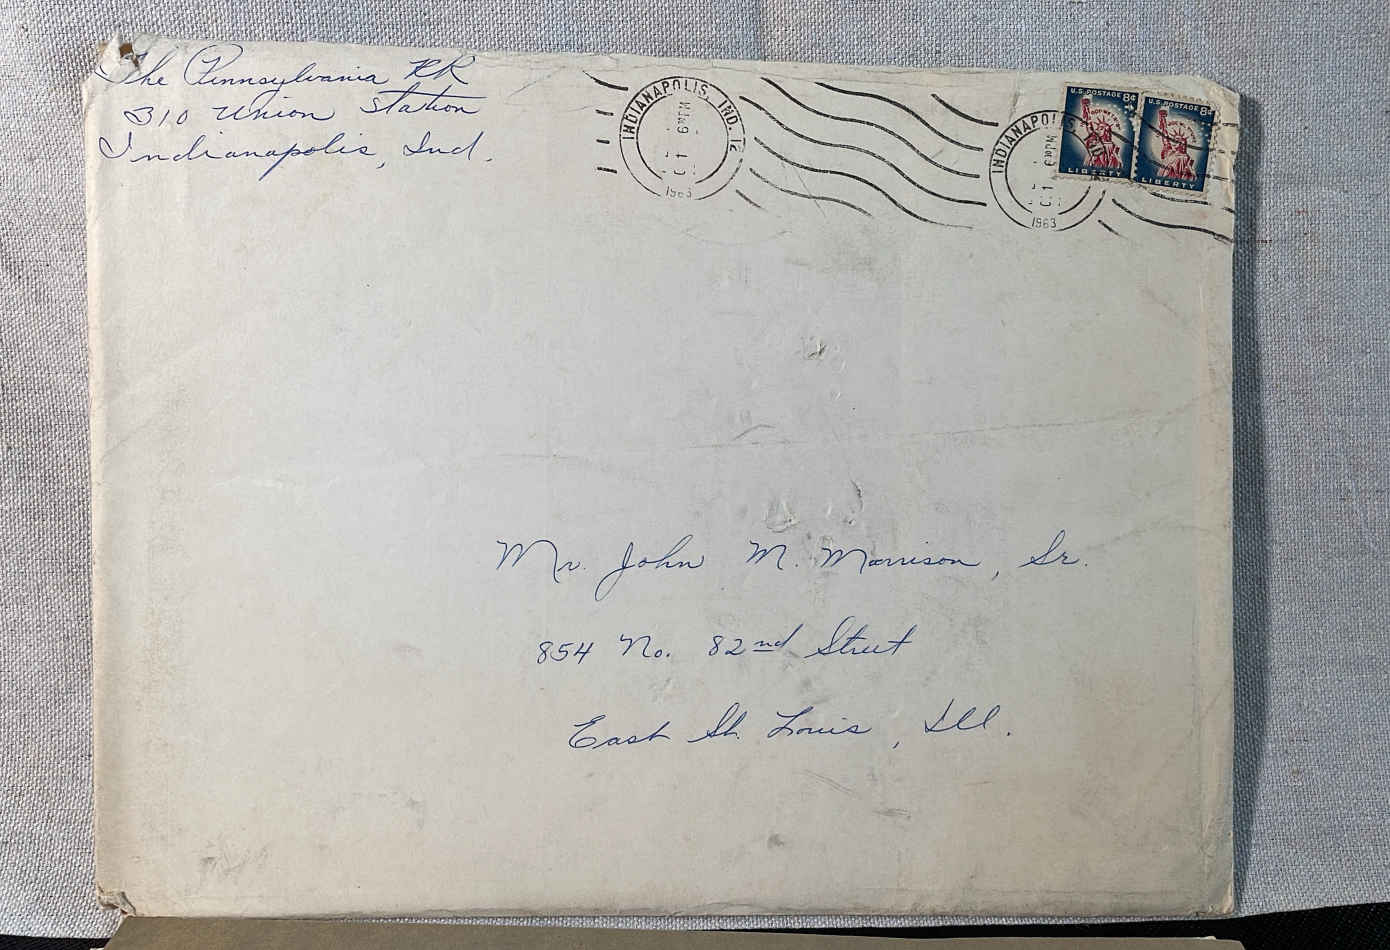 The Pennsylvania RR
310 Union Station
Indianapolis, Ind.
INDIANAPOLIS, IND. 12
6 PM
1963
INDIANAPOLIS
6 PM
1963
U.S. POSTAGE 8¢
LIBERTY
U.S. POSTAGE 8¢
LIBERTY
Mr. John M. Morrison, Sr.
854 No. 82nd Street
East St. Louis, Ill.